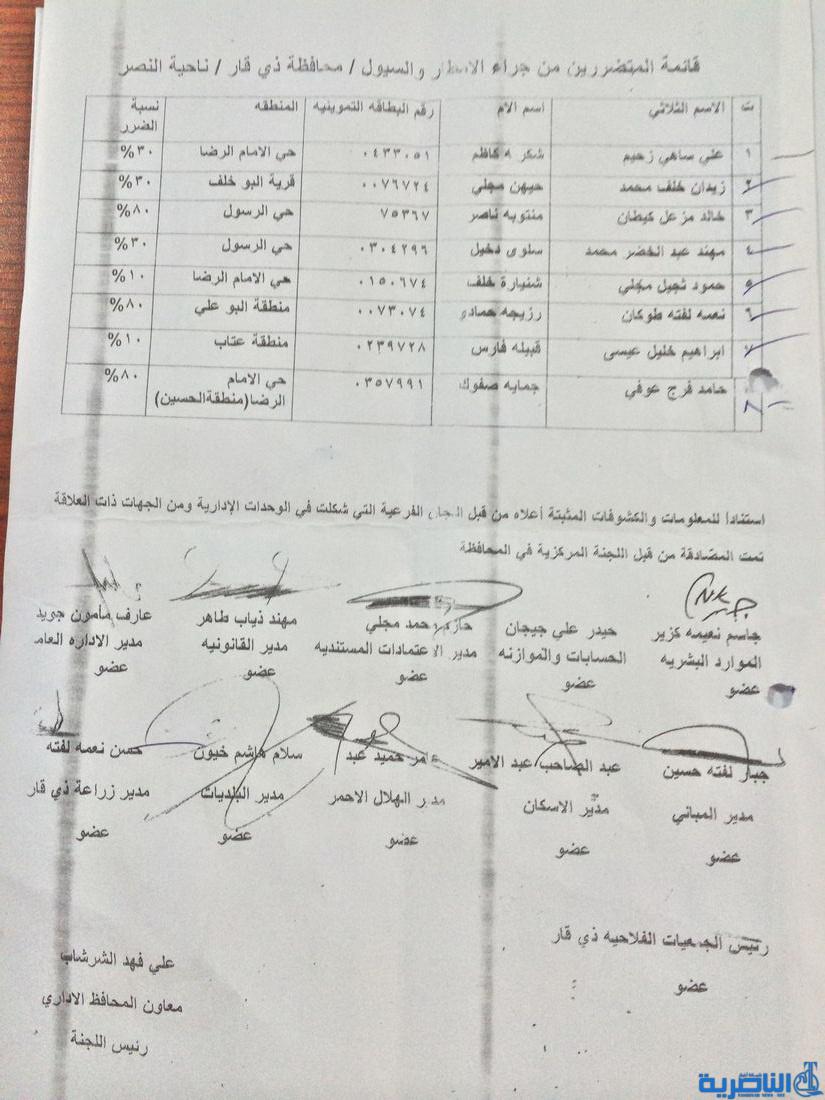 قائمة المتضررين من جراء الامطار والسيول / محافظة ذي قار / ناحية النصر
ت الاسم الثلاثي اسم الام رقم البطاقه التموينيه المنطقه نسبة الضرر
١ علي ساهي زحيم شكريه كاظم ٠٤٣٣٠٥١ حي الامام الرضا ٣٠%
٢ زيدان خلف محمد حيهن مجلي ٠٠٧٦٧٢٤ قرية البو خلف ٣٠%
٣ خالد مزعل كيطان منتوبه ناصر ٧٥٣٦٧ حي الرسول ٨٠%
٤ مهند عبد الخضر محمد سلوى دخيل ٠٣٠٤٢٩٦ حي الرسول ٣٠%
٥ حمود ثجيل مجلي شنيارة خلف ٠١٥٠٦٧٤ حي الامام الرضا ١٠%
٦ نعمه لفته طوكان رزيجه حمادو ٠٠٧٣٠٧٤ منطقة البو علي ٨٠%
٧ ابراهيم خليل عيسى قبيله فارس ٠٢٣٩٧٢٨ منطقة عتاب ١٠%
٨ حامد فرج عوفي جمايه صفوك ٠٣٥٧٩٩١ حي الامام الرضا(منطقةالحسين) ٨٠%
استنادا للمعلومات والكشوفات المثبتة أعلاه من قبل اللجان الفرعية التي شكلت في الوحدات الإدارية ومن الجهات ذات العلاقة
تمت المصادقة من قبل اللجنة المركزية في المحافظة
جاسم نعيمه كزير حيدر علي جيجان حازم محمد مجلي مهند ذياب طاهر عارف مأمون جويد
الموارد البشريه الحسابات والموازنه مدير الاعتمادات المستنديه مدير القانونيه مدير الاداره العامه
عضو عضو عضو عضو عضو
جبار لفته حسين عبد الصاحب عبد الامير عامر حميد عبد سلام هاشم خيون حسن نعمه لفته
مدير المباني مدير الاسكان مدير الهلال الاحمر مدير البلديات مدير زراعة ذي قار
عضو عضو عضو عضو عضو
رئيس الجمعيات الفلاحيه ذي قار
عضو
علي فهد الشرشاب
معاون المحافظ الاداري
رئيس اللجنة
الناصرية